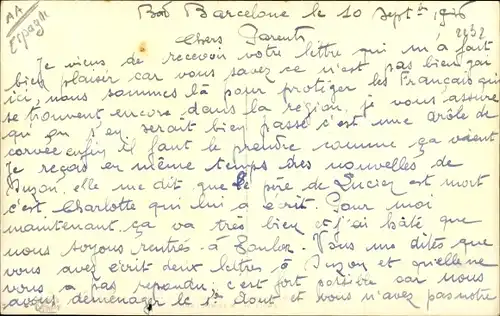 AA
Espagne
Bord Barcelone le 10 Septbre 1936
2832
Chers Parents
Je viens de recevoir votre lettre qui m'a fait
bien plaisir car vous savez ce n'est pas bien gai
ici, nous sommes là pour protiger les Français qui
se trouvent encore dans la région, je vous assure
qu'on s'en serait bien passé c'est une drôle de
corvée enfin il faut le prendre comme ça vient
Je reçois en même temps des nouvelles de
Suzon, elle me dit que le père de Lucien est mort
c'est Charlotte qui lui a écrit. Pour moi
maintenant ça va très bien et j'ai hâte que
nous soyons rentrés à Toulon. Vous me dites que
vous avez écrit deux lettres à Suzon et qu'elle ne
vous a pas repondu, c'est fort possible car nous
avons demenager le 1er Aout et vous n'avez pas notre